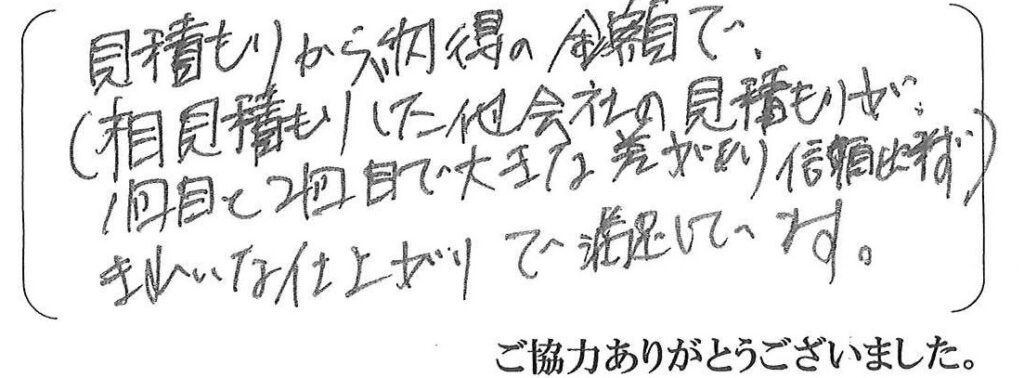 見積もりから納得の金額で、
(相見積もりした他会社の見積もりが、
1回目と2回目で大きな差があり信頼出来ず)
きれいな仕上がりで満足してます。
ご協力ありがとうございました。